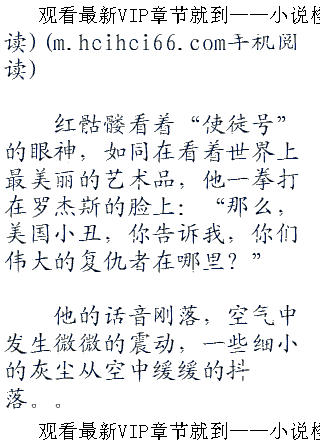 观看最新VIP章节就到——小说检
读)(m.hcihci66.com手机阅
读)
红骷髅看着“使徒号”
的眼神，如同在看着世界上
最美丽的艺术品，他一拳打
在罗杰斯的脸上：“那么，
美国小丑，你告诉我，你们
伟大的复仇者在哪里？”
他的话音刚落，空气中
发生微微的震动，一些细小
的灰尘从空中缓缓的抖
落。。
观看最新VIP章节就到——小说检